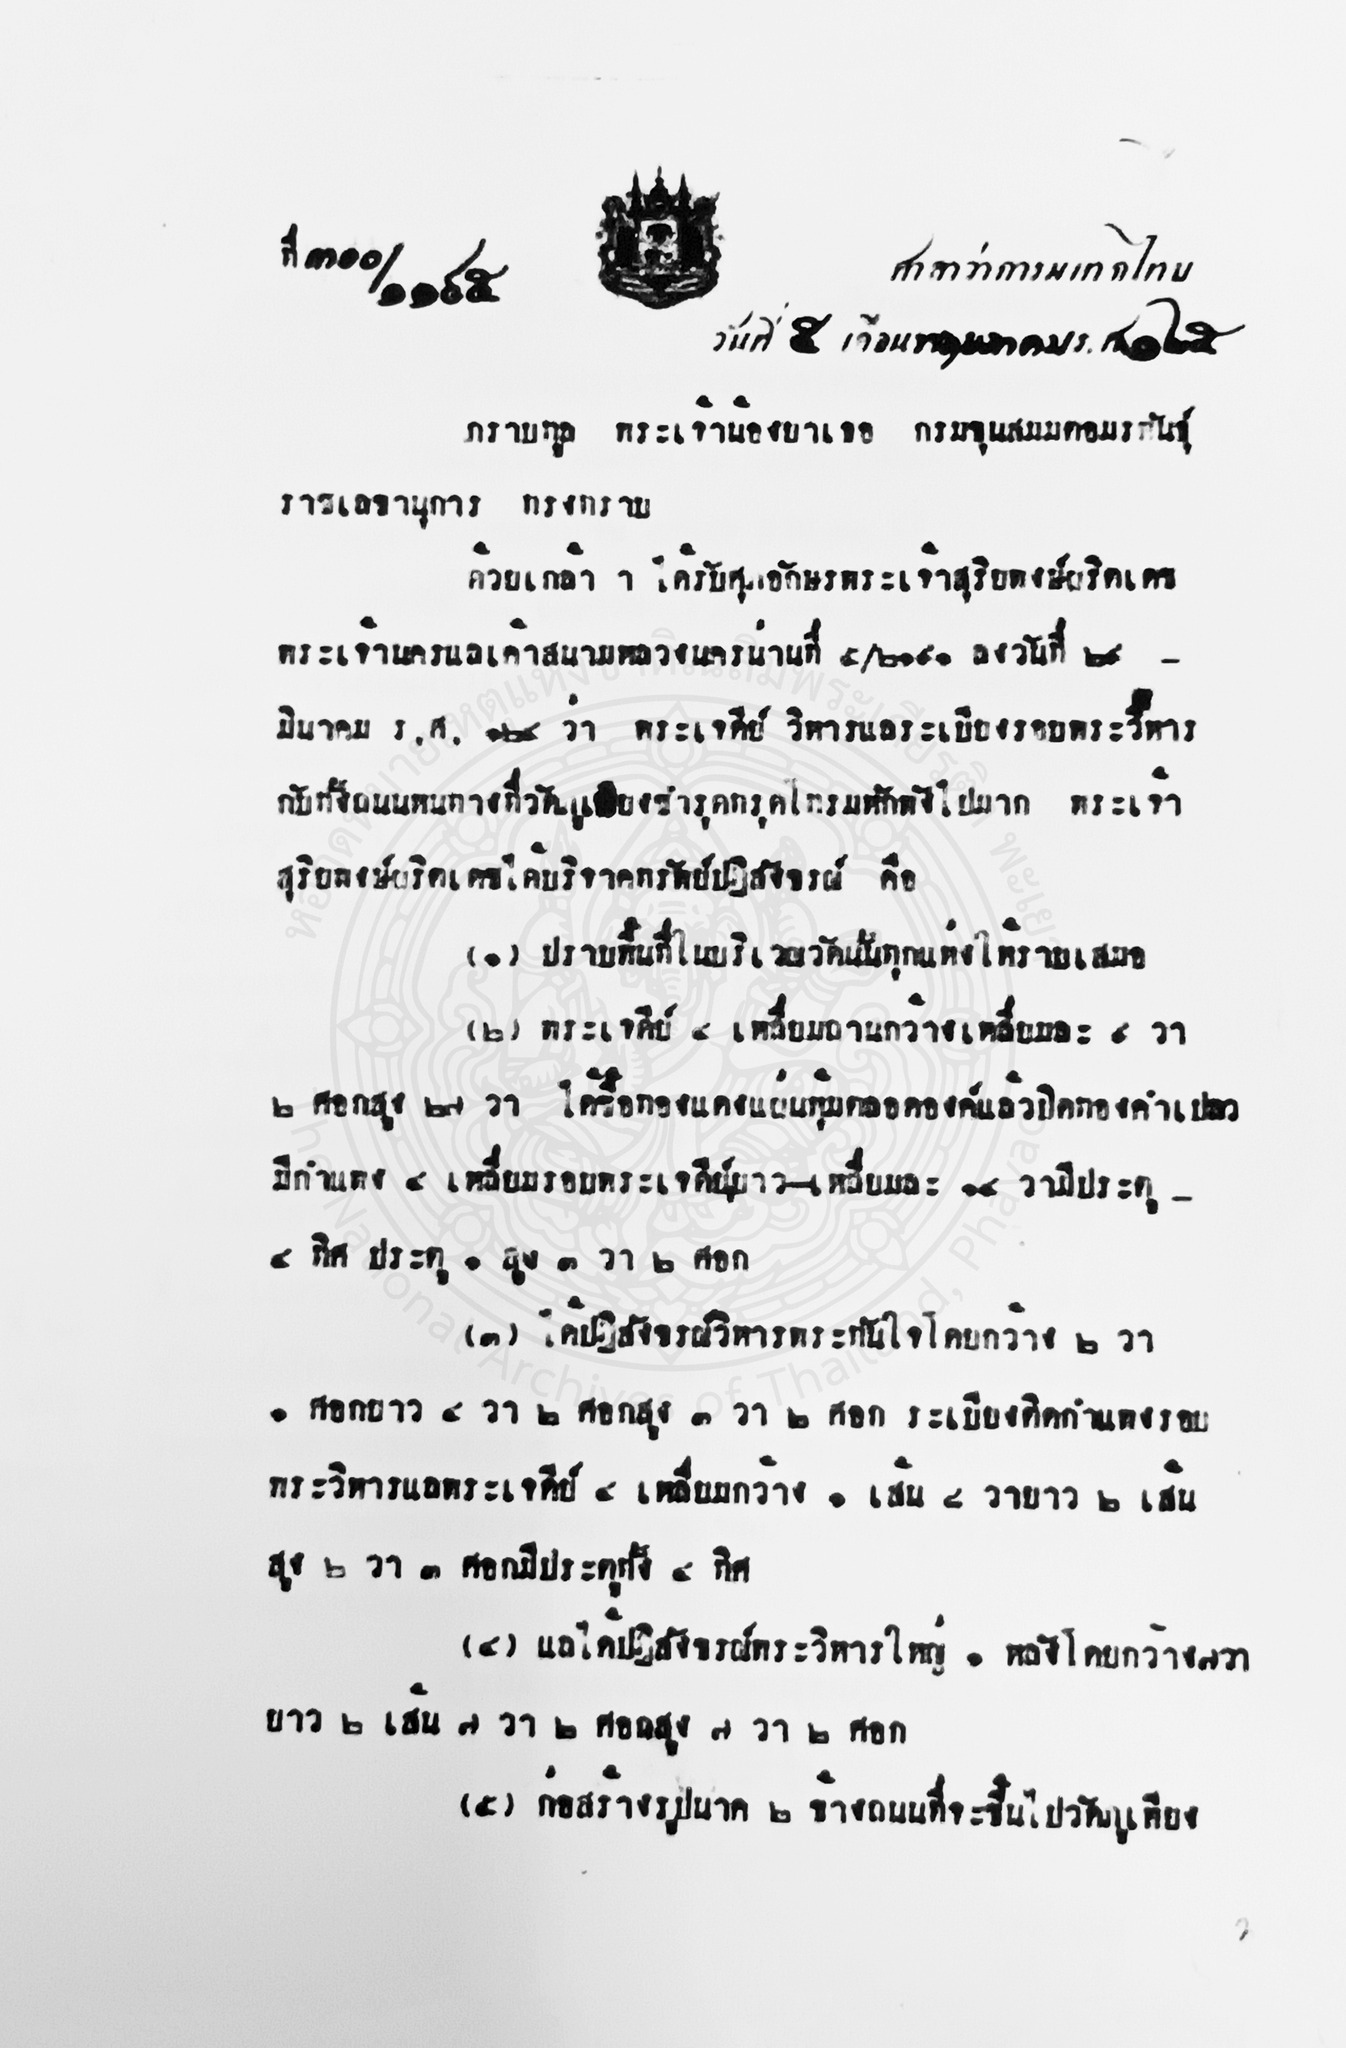 ที่ ๓๐๐/๑๑๔๕
ศาลาว่าการมหาดไทย
วันที่ ๕ เดือนพฤษภาคม ร.ศ. ๑๒๕
กราบทูล พระเจ้าน้องยาเธอ กรมขุนสมมตอมรพันธุ์
ราชเลขานุการ ทรงทราบ
ด้วยเกล้า ฯ ได้รับศุภอักษรพระเจ้าสุริยพงษ์ผริตเดช
พระเจ้านครแลเค้าสนามหลวงนครน่านที่ ๕/๒๑๙๑ ลงวันที่ ๒๙ _
มีนาคม ร.ศ. ๑๒๔ ว่า พระเจดีย์ วิหารแลระเบียงรอบพระวิหาร
กับทั้งถนนหนทางที่วัดภูเพียงชำรุดทรุดโทรมหักพังไปมาก พระเจ้า
สุริยพงษ์ผริตเดชได้บริจาคทรัพย์ปฏิสังขรณ์ คือ
(๑) ปราบพื้นที่ในบริเวณวัดนั้นทุกแห่งให้ราบเสมอ
(๒) พระเจดีย์ ๔ เหลี่ยมถานกว้างเหลี่ยมละ ๙ วา
๒ ศอกสูง ๒๗ วา ได้ซื้อทองแดงแผ่นหุ้มตลอดองค์แล้วปิดทองคำเปลว
มีกำแพง ๔ เหลี่ยมรอบพระเจดีย์ยาวเหลี่ยมละ ๑๔ วามีประตู _
๔ ทิศ ประตู ๑ สูง ๓ วา ๒ ศอก
(๓) ได้ปฏิสังขรณ์วิหารพระทันใจโดยกว้าง ๒ วา
๑ ศอกยาว ๔ วา ๒ ศอกสูง ๓ วา ๒ ศอก ระเบียงติดกำแพงรอบ
พระวิหารแลพระเจดีย์ ๔ เหลี่ยมกว้าง ๑ เส้น ๘ วายาว ๒ เส้น
สูง ๒ วา ๓ ศอกมีประตูทั้ง ๔ ทิศ
(๔) แลได้ปฏิสังขรณ์พระวิหารใหญ่ ๑ หลังโดยกว้าง๗วา
ยาว ๒ เส้น ๗ วา ๒ ศอกสูง ๗ วา ๒ ศอก
(๕) ก่อสร้างรูปนาค ๒ ข้างถนนที่จะขึ้นไปวัดภูเพียง
หอจดหมายเหตุแห่งชาติเฉลิมพระเกียรติฯ พะเยา
The National Archives of Thailand, Phayao